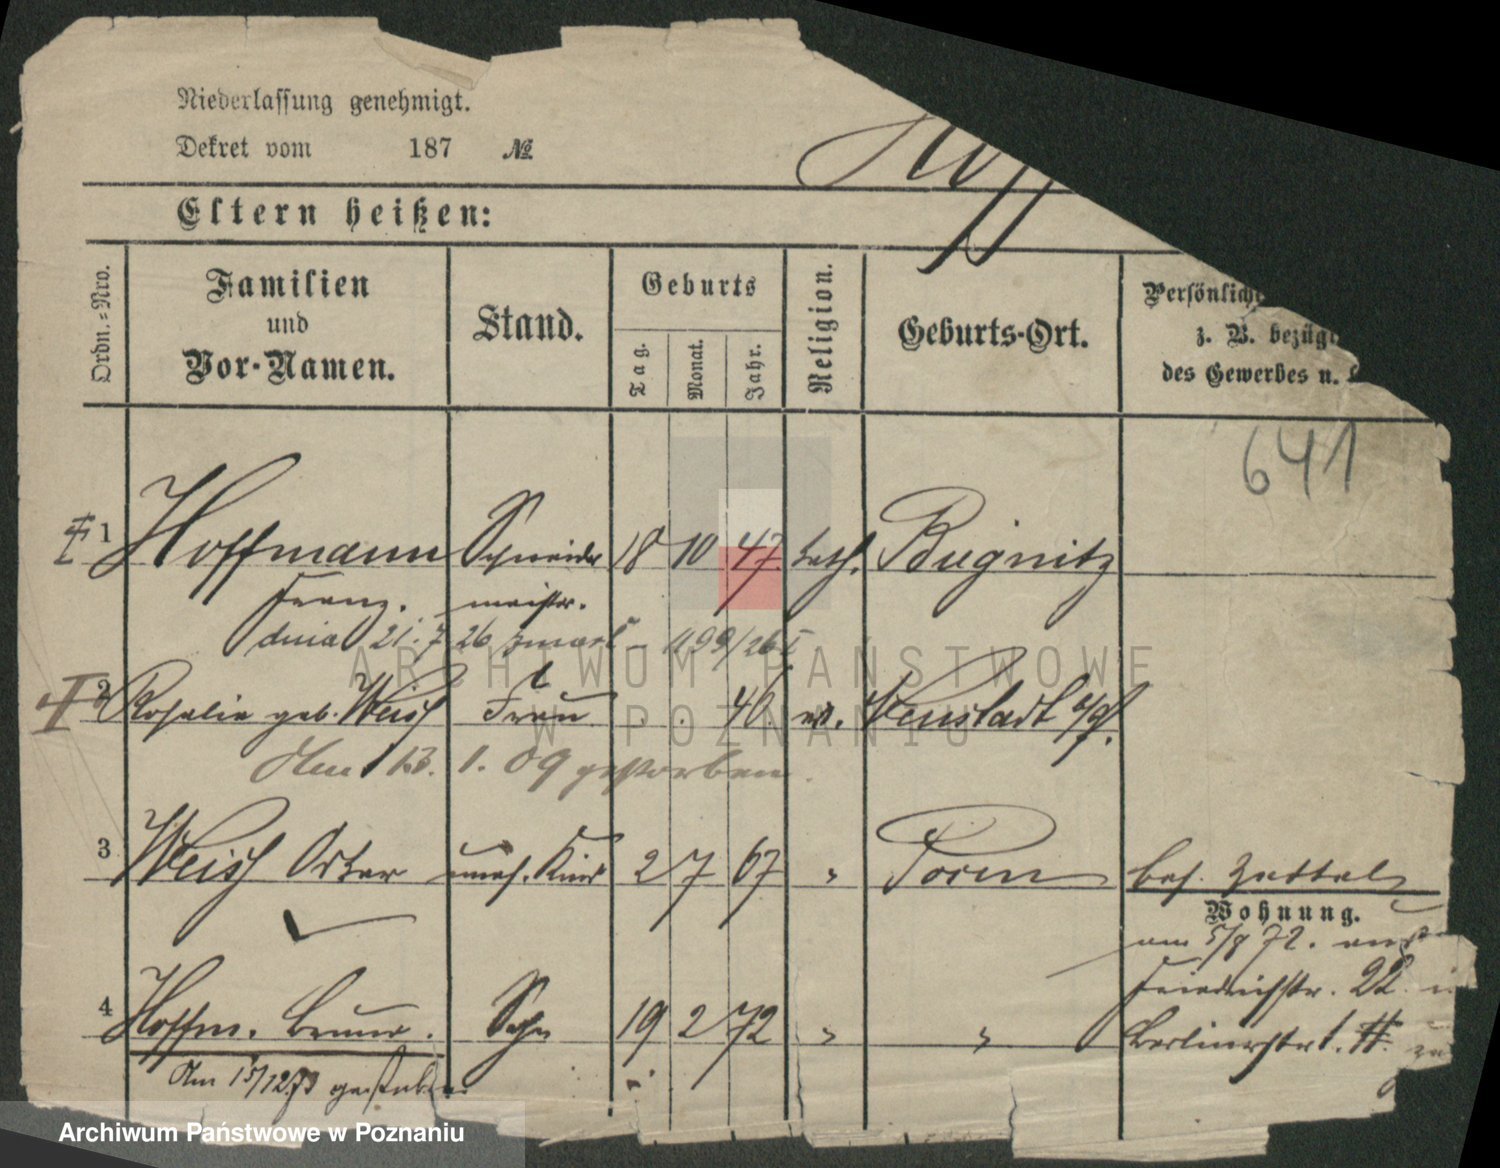 Niederlassung genehmigt.
Dekret vom 187 №
Hoff
Eltern heißen:
Ordn.=Nro. Familien und Vor-Namen. Stand. Geburts Tag. Monat. Jahr. Religion. Geburts-Ort. Persönliche z. B. bezügl des Gewerbes u.
641
1 Hoffmann Schneider 18 10 47 kath. Bugnitz
Franz. meister.
dnia 21. 7 26 zmarł - 1199/26 I
2 Rosalie geb. Weiss Frau . . 46 ev. Neustadt
Am 13. 1. 09 gestorben.
3 Weiss Oskar uneh. Kind 2 7 67 " Posen bes. Zettel
Wohnung.
am 5/9 72. aus
Friedrichstr. 22
4 Hoffm. Bruno. Sohn 19 2 72 " " Berlinerstr.
Am 15/12.73 gestorben
ARCHIWUM PAŃSTWOWE
W POZNANIU
Archiwum Państwowe w Poznaniu